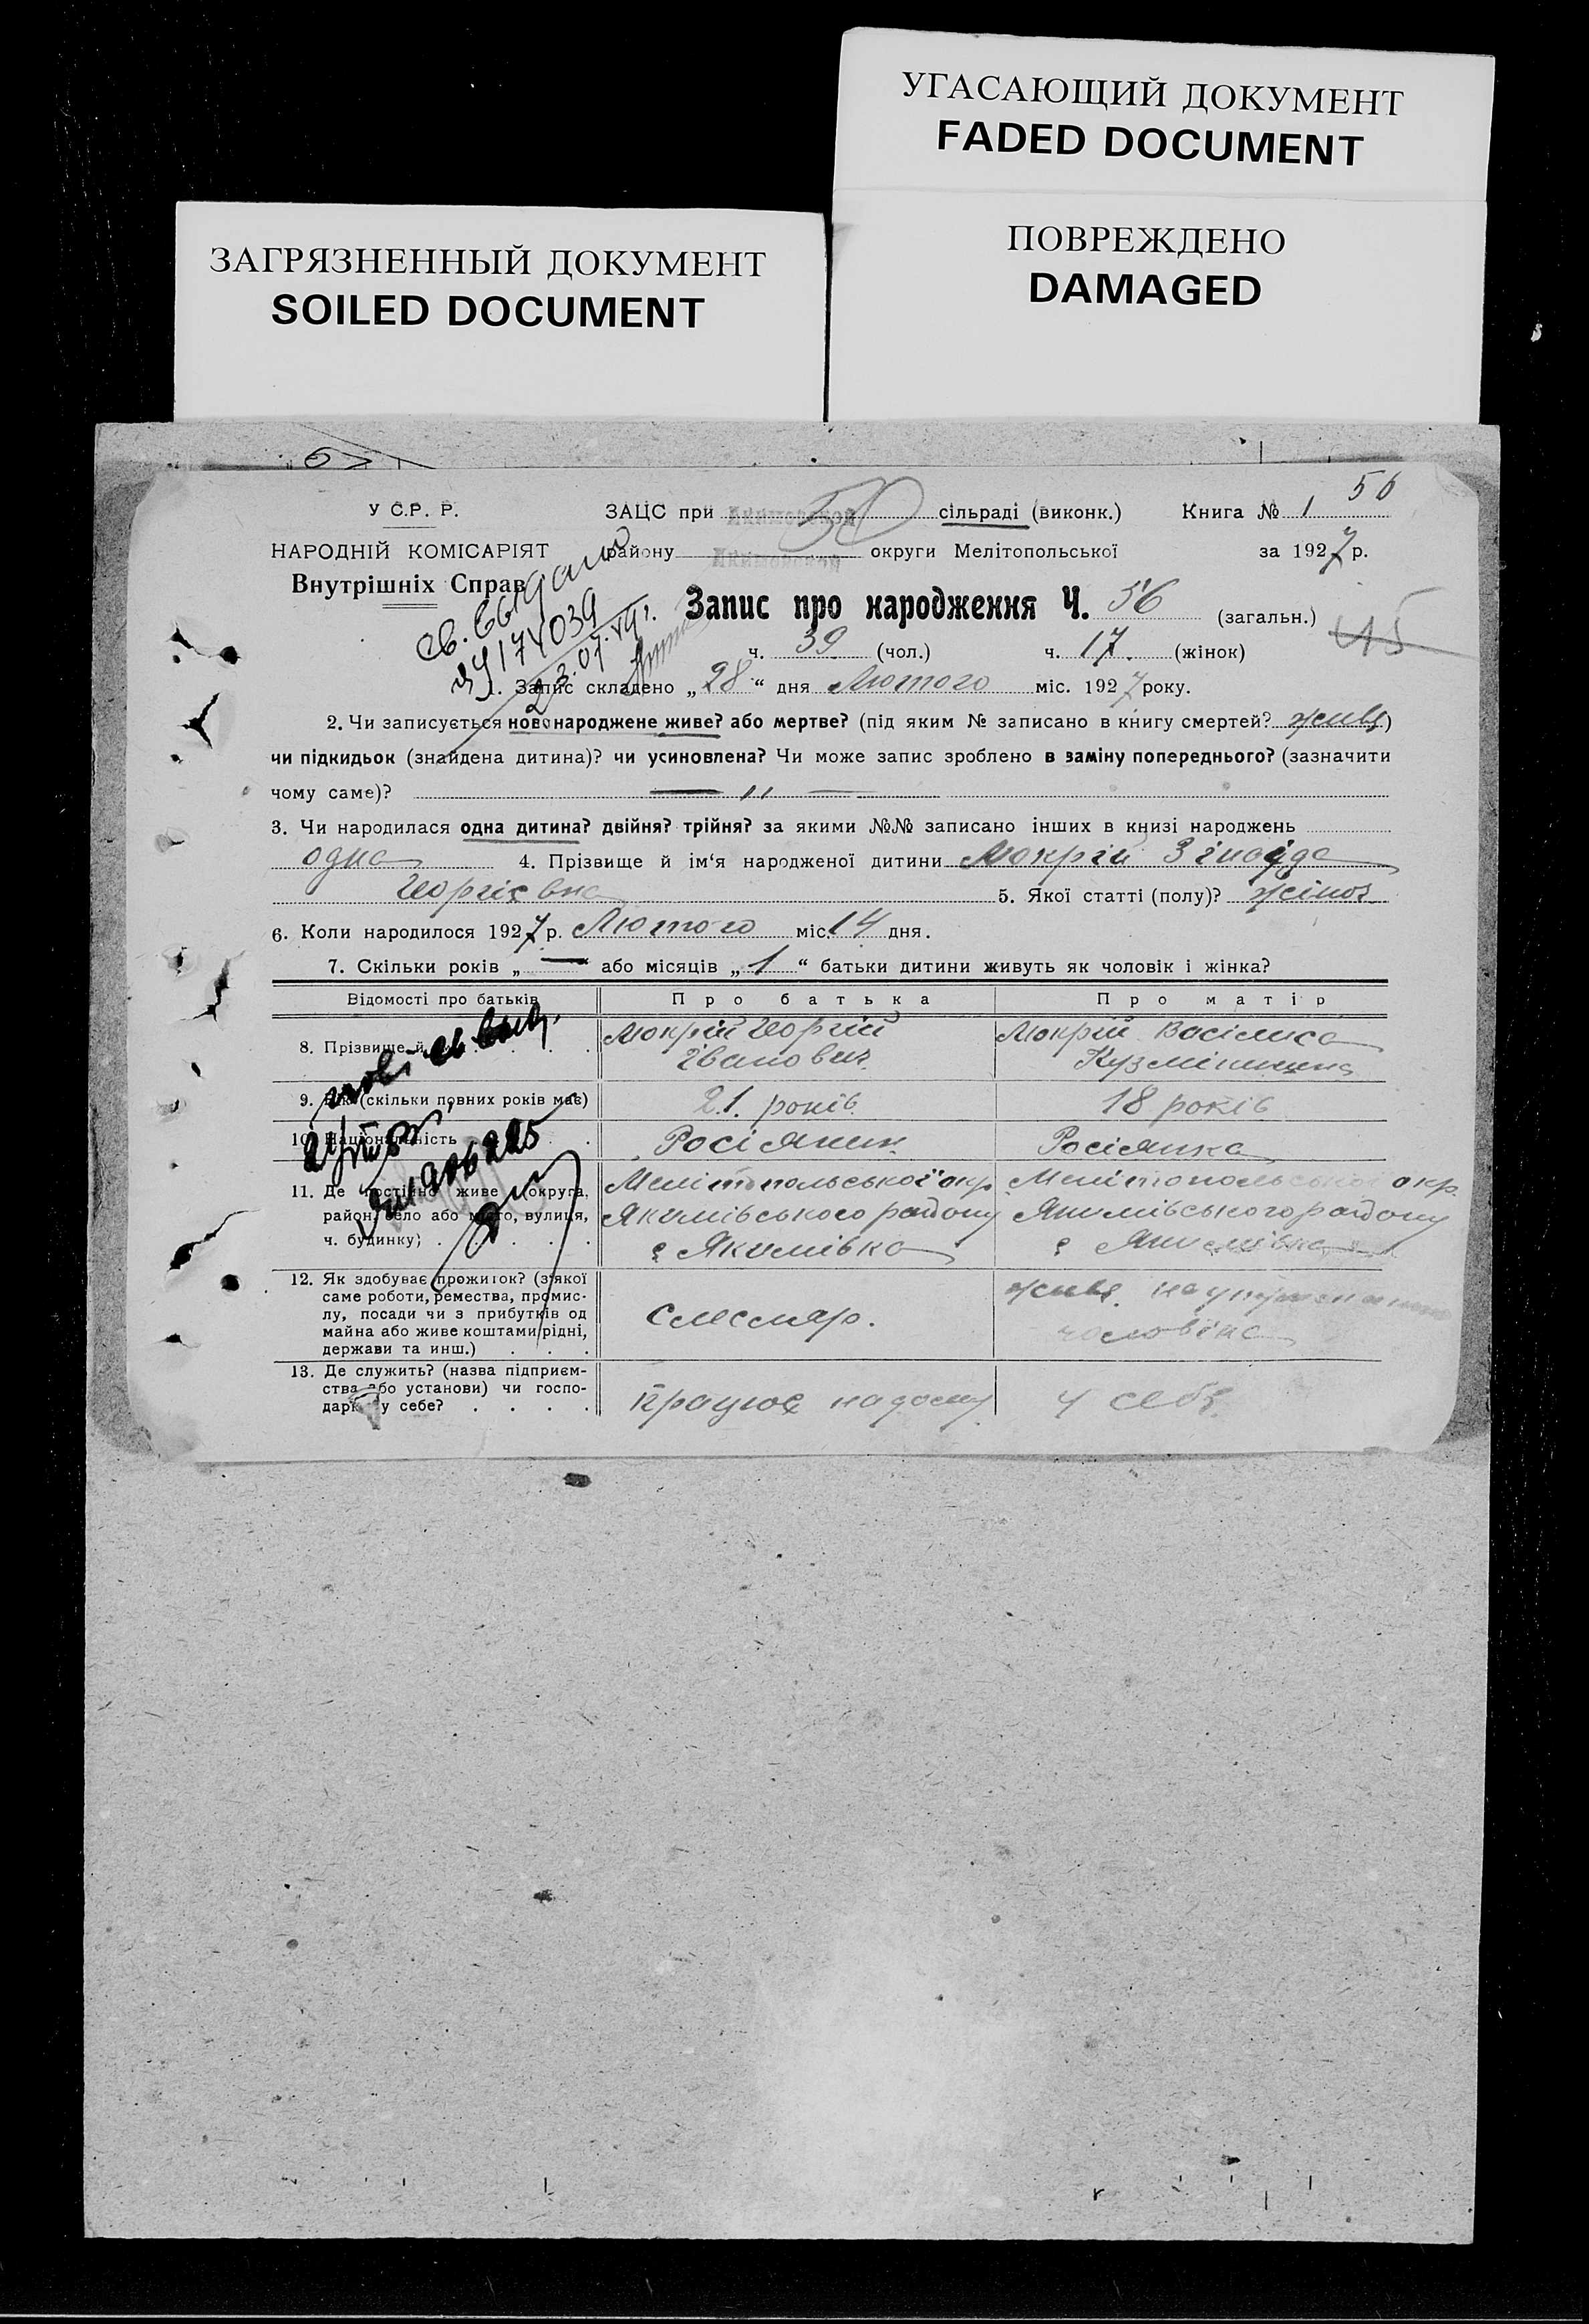 УГАСАЮЩИЙ ДОКУМЕНТ
FADED DOCUMENT
ЗАГРЯЗНЕННЫЙ ДОКУМЕНТ
SOILED DOCUMENT
ПОВРЕЖДЕНО
DAMAGED
56
У С.Р. Р. ЗАЦС при Акимовской 50 сільраді (виконк.) Книга № 1
НАРОДНІЙ КОМІСАРІЯТ району Акимовской округи Мелітопольської за 1927 р.
Внутрішніх Справ
св. выдано
Запис про народження Ч. 56 (загальн.)
ч. 39 (чол.) ч. 17. (жінок)
1. Запис складено „28“ дня Лютого міс. 1927 року.
2. Чи записується новонароджене живе? або мертве? (під яким № записано в книгу смертей? живе)
чи підкидьок (знайдена дитина)? чи усиновлена? Чи може запис зроблено в заміну попереднього? (зазначити
чому саме)? — „ —
3. Чи народилася одна дитина? двійня? трійня? за якими №№ записано інших в книзі народжень
одна 4. Прізвище й ім‘я народженої дитини Мокрій Зінаїда
Георгієвна 5. Якої статті (полу)? жіноч
6. Коли народилося 1927 р. Лютого міс. 14 дня.
7. Скільки років „—“ або місяців „1“ батьки дитини живуть як чоловік і жінка?
Відомості про батьків Про батька Про матір
8. Прізвище й Мокрій Георгій Мокрій Васіліса
Іванович
9. Вік (скільки повних років має) 21. років 18 років
10. Національність Росіянин. Росіянка
11. Де постійно живе (округа, Мелітопольської окр Мелітопольської окр.
район, село або місто, вулиця, Якимівського району Якимівського району
ч. будинку) с Якимівка с Якимівка
12. Як здобуває прожиток? (з якої
саме роботи, ремества, промис- живе на
лу, посади чи з прибутків од слесляр.
майна або живе коштами рідні, чоловіка
держави та инш.)
13. Де служить? (назва підприєм-
ства або установи) чи госпо- Працює на дому у себе.
дарює у себе?